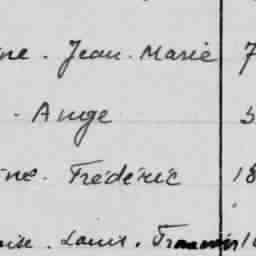 ne. Jean-Marie 7
. Ange
ne. Frédéric 18
Louis. François